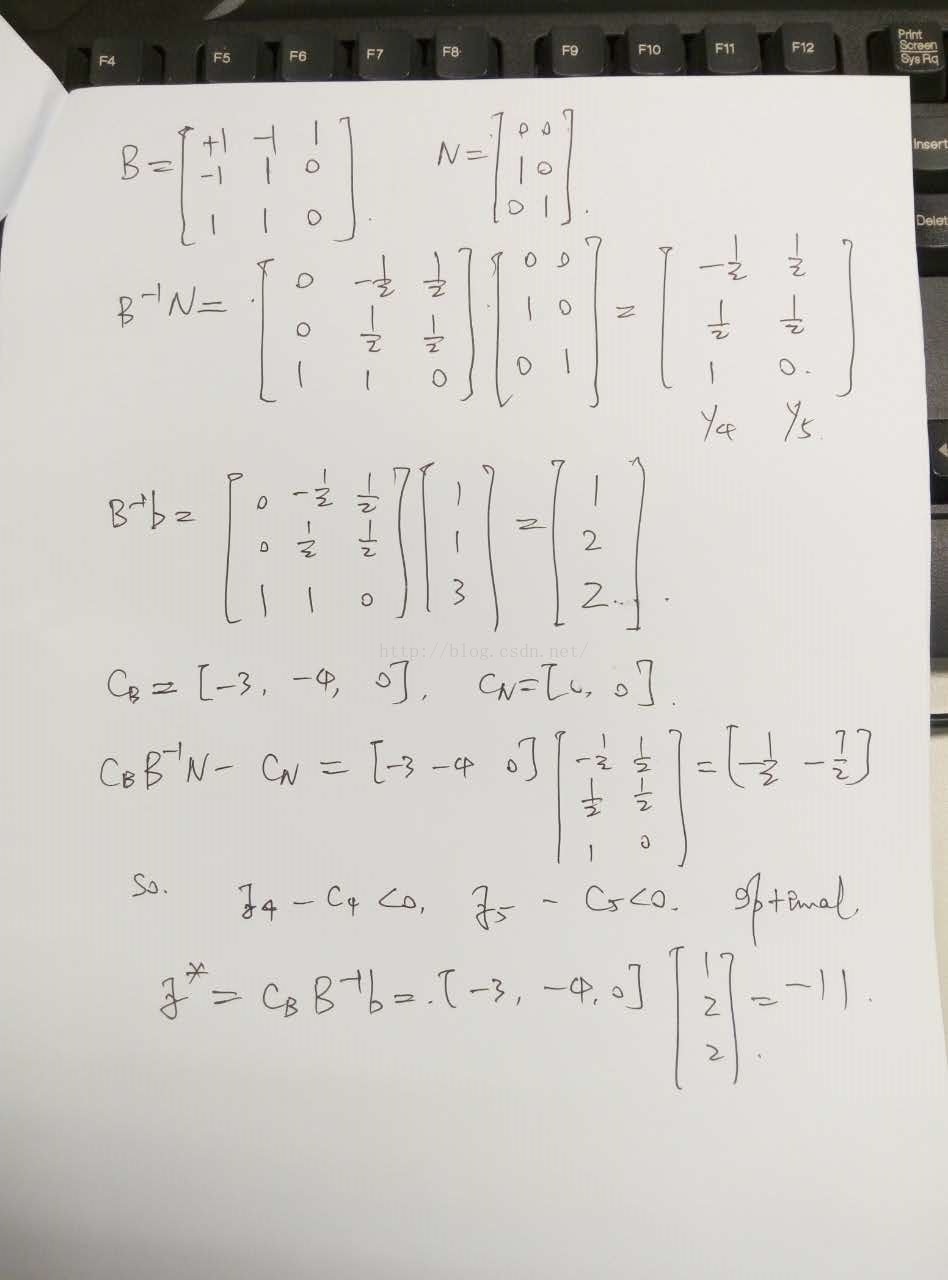 F4 F5 F6 F7 F8 F9 F10 F11 F12 Print Screen/Sys Rq
Insert
Delet
B = [+1 -1 1; -1 1 0; 1 1 0]. N = [0 0; 1 0; 0 1].
B⁻¹N = [0 -1/2 1/2; 0 1/2 1/2; 1 1 0] · [0 0; 1 0; 0 1] = [-1/2 1/2; 1/2 1/2; 1 0.]
y4 y5.
B⁻¹b = [0 -1/2 1/2; 0 1/2 1/2; 1 1 0] [1; 1; 3] = [1; 2; 2..].
http://blog.csdn.net/
C_B = [-3, -4, 0], C_N = [0, 0].
C_B B⁻¹N - C_N = [-3 -4 0] [-1/2 1/2; 1/2 1/2; 1 0] = [-1/2 -7/2]
So. z4 - C4 <0, z5 - C5 <0. Optimal,
z* = C_B B⁻¹b = .[-3, -4, 0] [1; 2; 2] = -11.